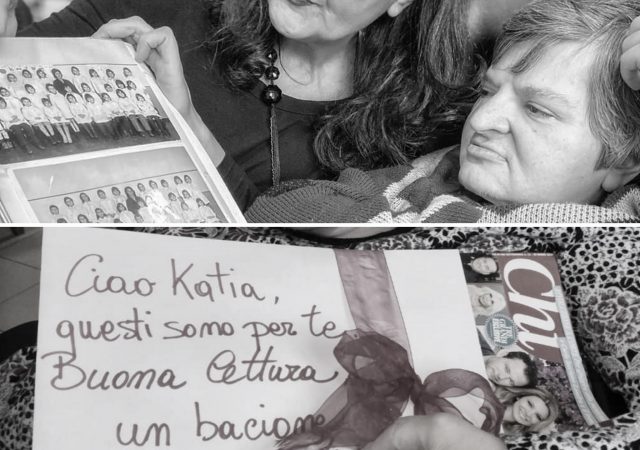 Ciao Katia,
questi sono per te
Buona Lettura
un bacione
Chi